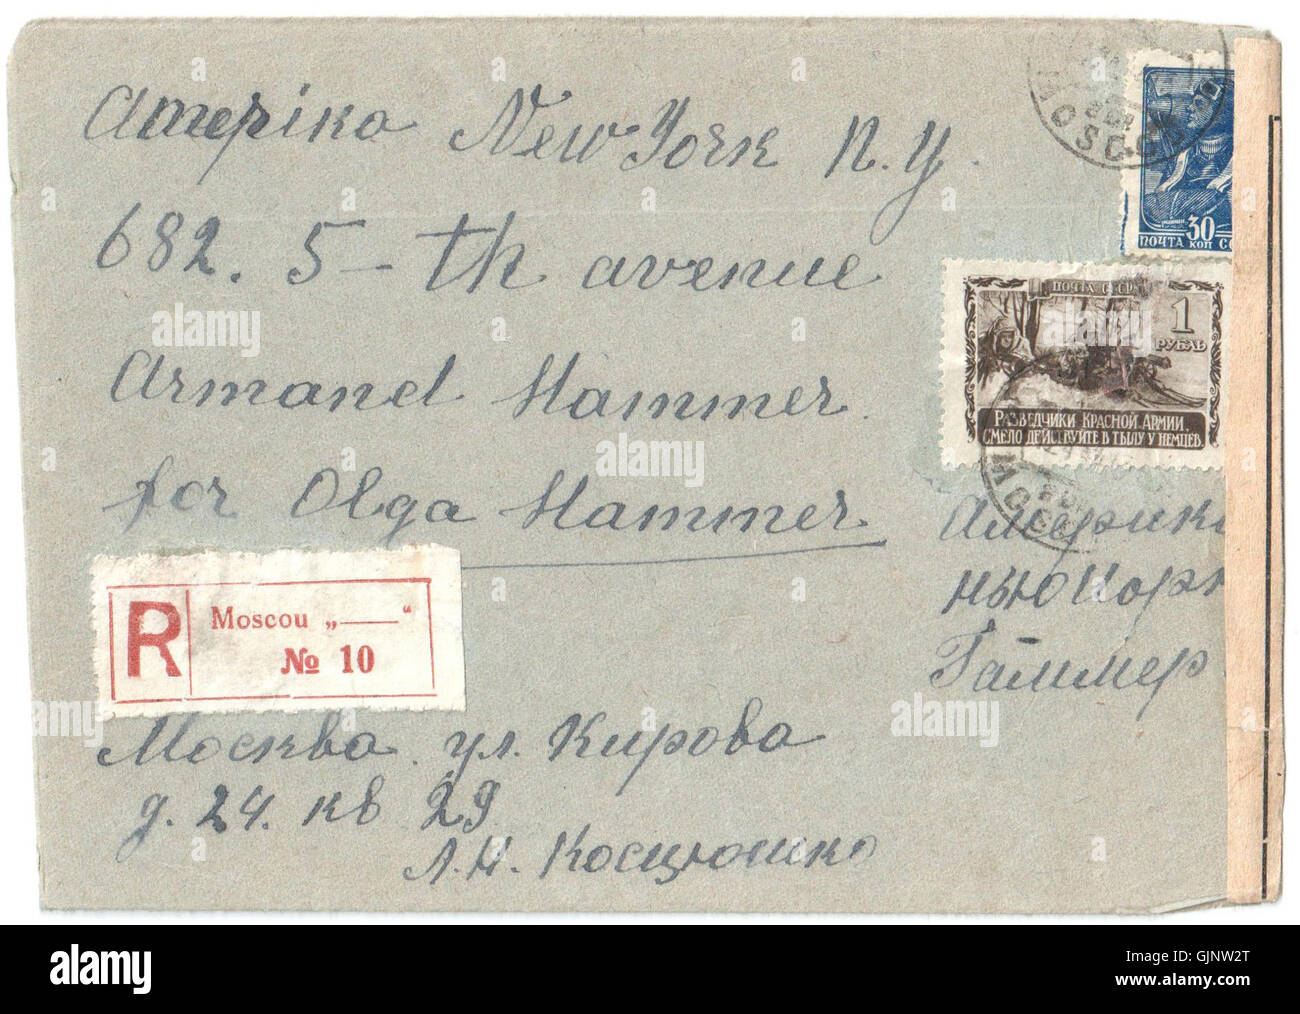 Америка New York N.Y.
682. 5-th avenue
Armand Hammer.
for Olga Hammer
MOSCOU
30
ПОЧТА КОП СС
ПОЧТА СССР
1
РУБЛЬ
РАЗВЕДЧИКИ КРАСНОЙ АРМИИ.
СМЕЛО ДЕЙСТВУЙТЕ В ТЫЛУ У НЕМЦЕВ.
MOSCOU
Америка
Нью Иорк
Гаммер
R Moscou „—“
№ 10
Москва ул. Кирова
д. 24. кв 29
Л.Н. Косцюшко
alamy
a
alamy
Image ID: GJNW2T
www.alamy.com